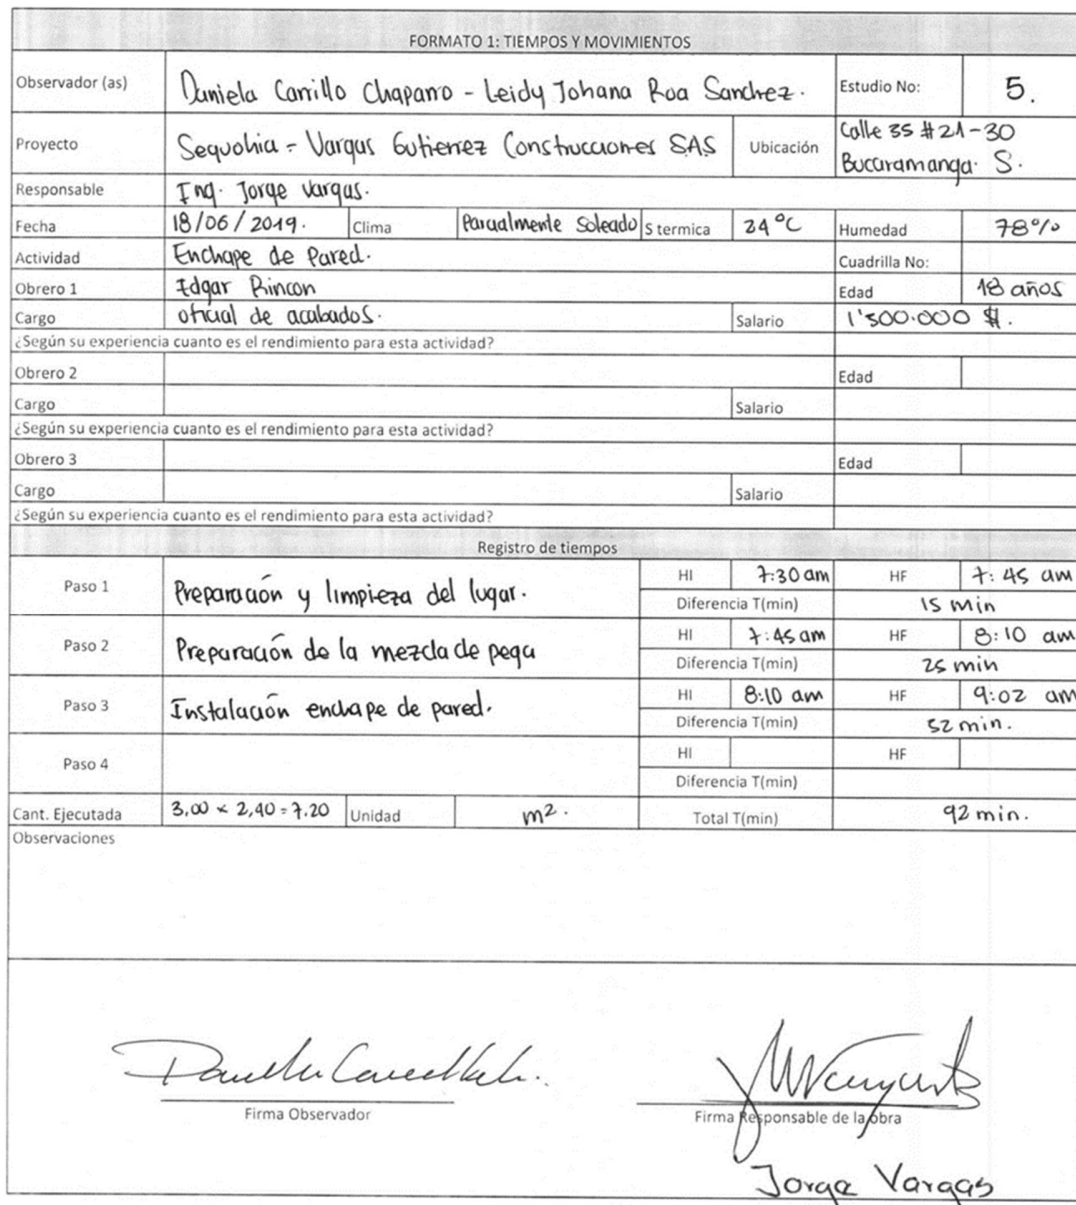 FORMATO 1: TIEMPOS Y MOVIMIENTOS
Observador (as) Daniela Carrillo Chaparro - Leidy Johana Roa Sanchez. Estudio No: 5.
Proyecto Sequohia - Vargas Gutierrez Construcciones SAS Ubicación Calle 35 # 21-30
Bucaramanga. S.
Responsable Ing. Jorge Vargas.
Fecha 18/06/2019. Clima Parcialmente Soleado S termica 24 °C Humedad 78%
Actividad Enchape de Pared. Cuadrilla No:
Obrero 1 Edgar Rincon Edad 18 años
Cargo oficial de acabados. Salario 1'500.000 $.
¿Según su experiencia cuanto es el rendimiento para esta actividad?
Obrero 2 Edad
Cargo Salario
¿Según su experiencia cuanto es el rendimiento para esta actividad?
Obrero 3 Edad
Cargo Salario
¿Según su experiencia cuanto es el rendimiento para esta actividad?
Registro de tiempos
Paso 1 Preparación y limpieza del lugar. HI 7:30 am HF 7:45 am
Diferencia T(min) 15 min
Paso 2 Preparación de la mezcla de pega HI 7:45 am HF 8:10 am
Diferencia T(min) 25 min
Paso 3 Instalación enchape de pared. HI 8:10 am HF 9:02 am
Diferencia T(min) 52 min.
Paso 4 HI HF
Diferencia T(min)
Cant. Ejecutada 3,00 × 2,40 = 7.20 Unidad m². Total T(min) 92 min.
Observaciones
Firma Observador
Firma Responsable de la obra
Jorge Vargas